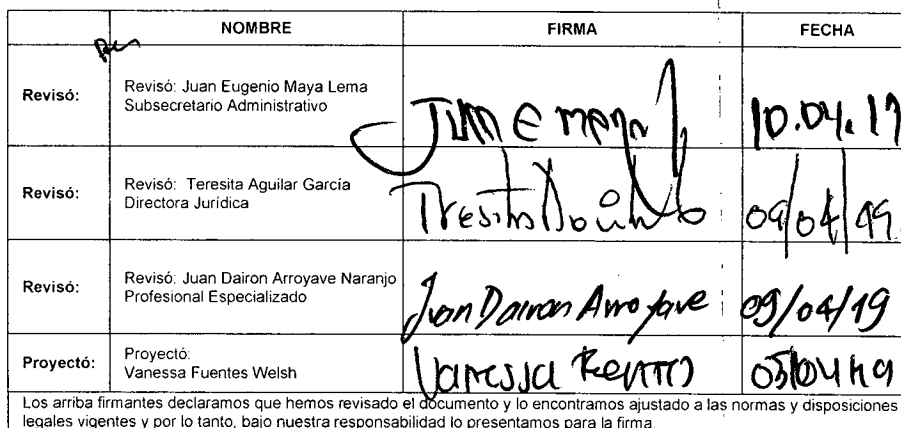 NOMBRE FIRMA FECHA
Revisó: Revisó: Juan Eugenio Maya Lema
Subsecretario Administrativo
10.04.19
Revisó: Revisó: Teresita Aguilar García
Directora Jurídica
09/04/19
Revisó: Revisó: Juan Dairon Arroyave Naranjo
Profesional Especializado
Juan Dairon Arroyave 09/04/19
Proyectó: Proyectó:
Vanessa Fuentes Welsh
Vanessa 05/04/19
Los arriba firmantes declaramos que hemos revisado el documento y lo encontramos ajustado a las normas y disposiciones
legales vigentes y por lo tanto, bajo nuestra responsabilidad lo presentamos para la firma.